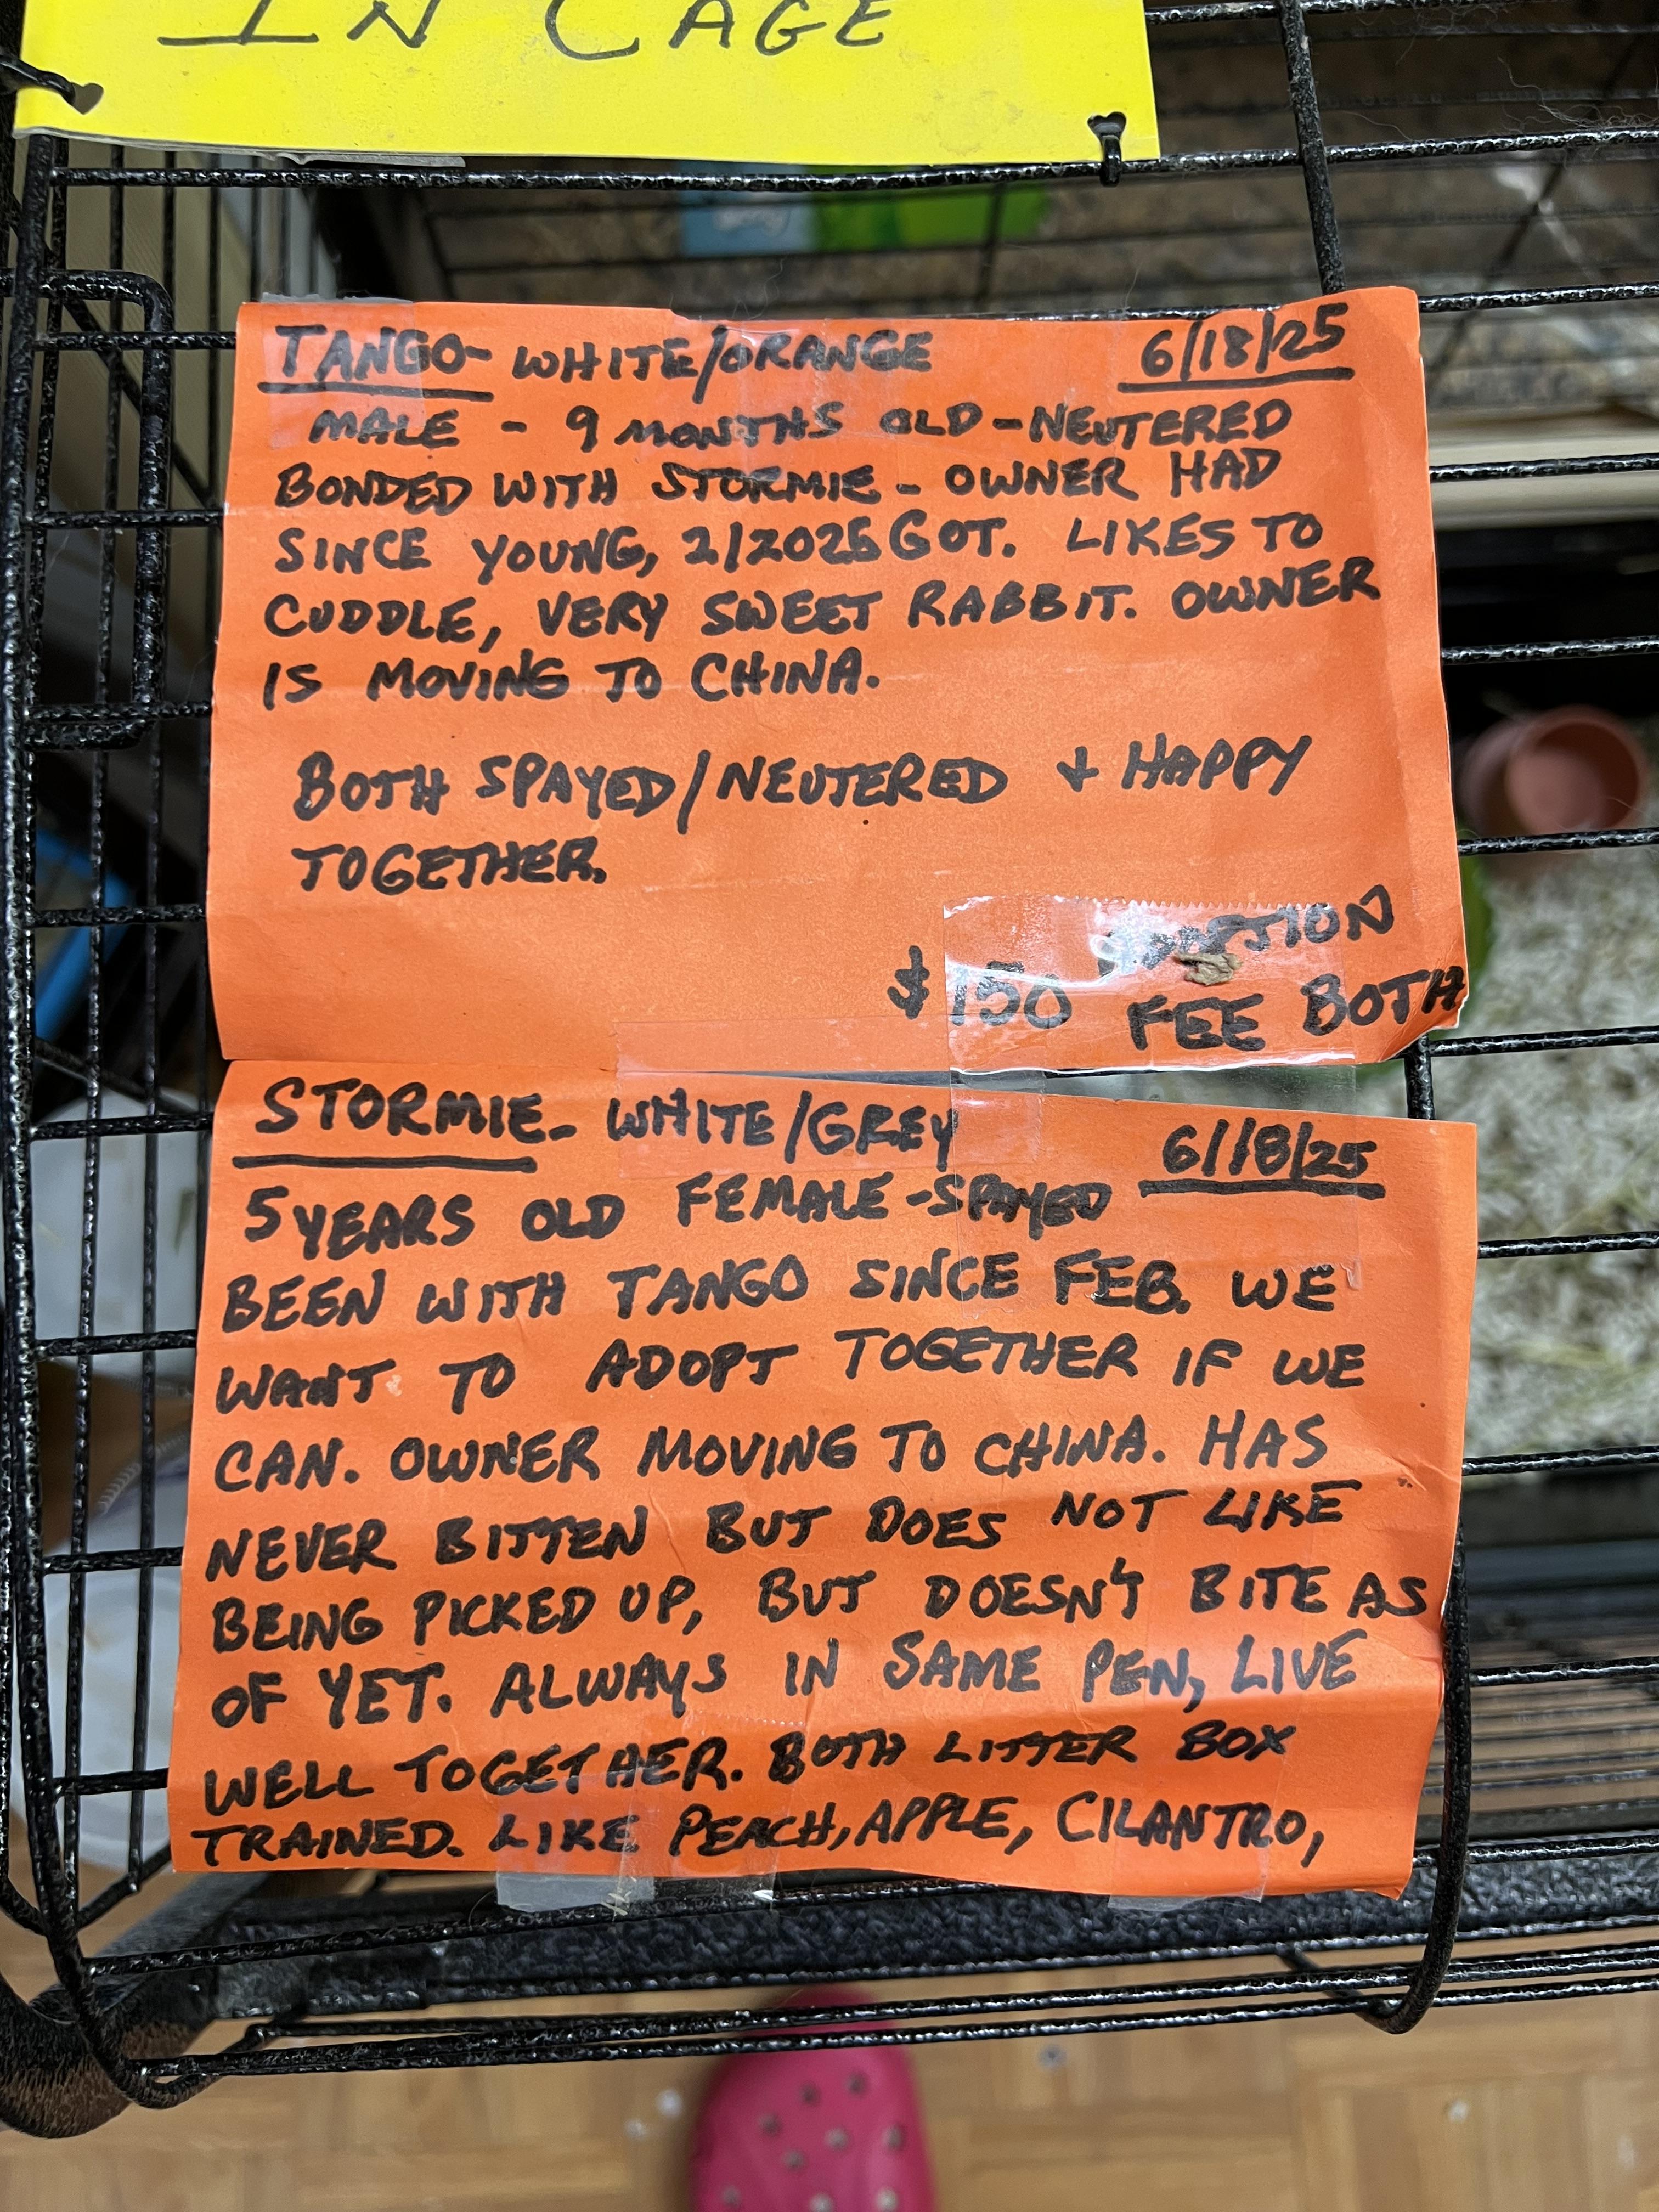 IN CAGE
TANGO- WHITE/ORANGE 6/18/25
MALE - 9 MONTHS OLD - NEUTERED
BONDED WITH STORMIE - OWNER HAD
SINCE YOUNG, 2/2025 GOT. LIKES TO
CUDDLE, VERY SWEET RABBIT. OWNER
IS MOVING TO CHINA.
BOTH SPAYED/NEUTERED + HAPPY
TOGETHER.
$150 ADOPTION
FEE BOTH
STORMIE- WHITE/GREY 6/18/25
5 YEARS OLD FEMALE - SPAYED
BEEN WITH TANGO SINCE FEB. WE
WANT TO ADOPT TOGETHER IF WE
CAN. OWNER MOVING TO CHINA. HAS
NEVER BITTEN BUT DOES NOT LIKE
BEING PICKED UP, BUT DOESN'T BITE AS
OF YET. ALWAYS IN SAME PEN, LIVE
WELL TOGETHER. BOTH LITTER BOX
TRAINED. LIKE PEACH, APPLE, CILANTRO,